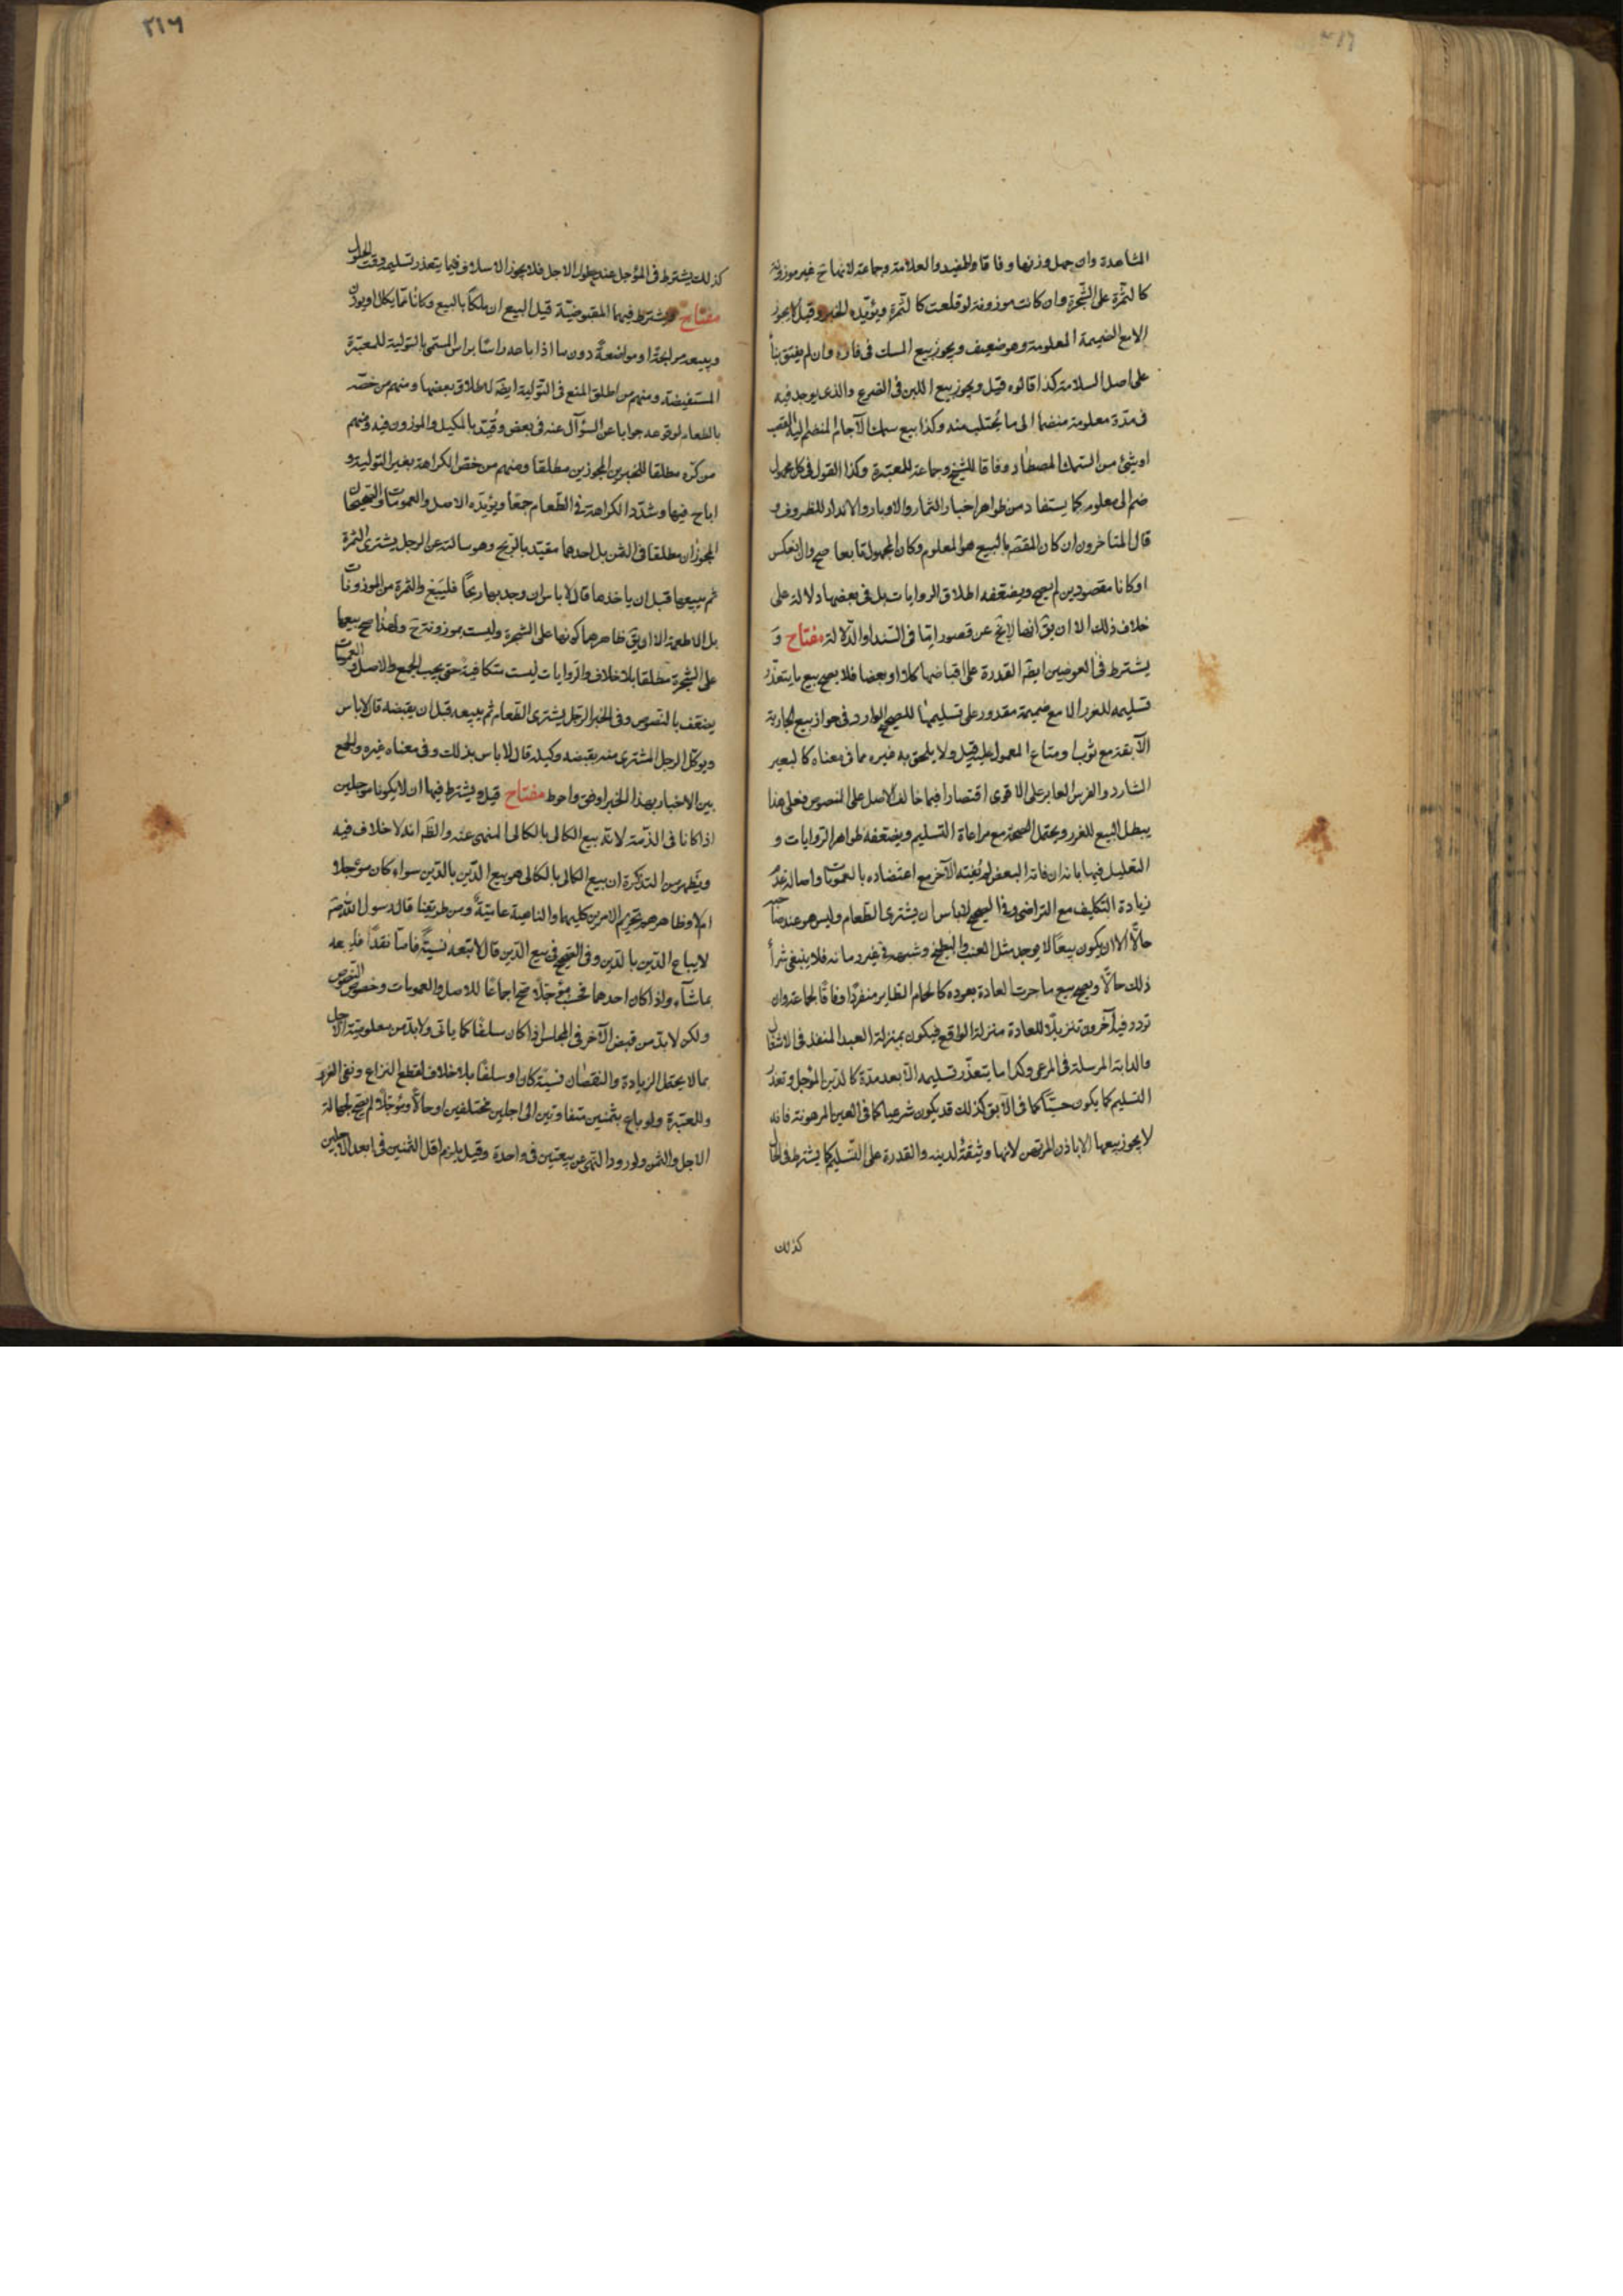 المشاهدة وان جهل وزنها وفاقا للمفيد والعلامة وجماعة لانها ح غير موزونة
كالثمرة على الشجرة وان كانت موزونة لو قلعت كالثمرة ويؤيده الخبر وقيل لا يجوز
الا مع الضميمة المعلومة وهو ضعيف ويجوز بيع المسك في فاره وان لم يفتق بناً
على اصل السلامة كذا قالوه قيل ويجوز بيع اللبن في الضرع والذي يوجد فيه
في مدة معلومة منضما الى ما يحتلب منه وكذا بيع سمك الآجام المنضم اليه القصب
او شئ من السمك المصطاد وفاقا للشيخ وجماعة للمعتبرة وكذا القول في كل مجهول
ضم الى معلوم كما يستفاد من ظواهر اخبار الثمار والاوبار والانداد للظروف و
قال المتاخرون ان كان المقصد بالبيع هو المعلوم وكان المجهول تابعا صح وان انعكس
او كانا مقصودين لم يصح ويضعفه اطلاق الروايات بل في بعضها دلالة على
خلاف ذلك الا ان يق انها لا تخ عن قصور اما في السند او الدلالة مفتاح و
يشترط في العوضين ايضا القدرة على اقباضهما كلا او بعضا فلا يصح بيع ما يتعذر
تسليمه للغرر الا مع ضميمة مقدور على تسليمها للصحيح الوارد في جواز بيع الجارية
الآبقة مع ثوب او متاع المعمول عليه قيل ولا يلحق به غيره مما في معناه كالبعير
الشارد والفرس العاير على الاقوى اقتصارا فيما خالف الاصل على المنصوص فعلى هذا
يبطل البيع للغرر ويحتمل الصحة مع مراعاة التسليم ويضعفه ظواهر الروايات و
التعليل فيها بانه ان فاته البعض لم يفته الآخر مع اعتضاده بالعمومات واصالة عدم
زيادة التكليف مع التراضي وفي الصحيح لا باس ان يشترى الطعام وليس هو عند صاحبه
حالا الا ان يكون بيعا لا يوجد مثل العنب والبطيخ وشبهه في غير زمانه فلا ينبغي شرأ
ذلك حالا ويصح بيع ما جرت العادة بعوده كالحمام الطاير منفردا وفاقا لجماعة وان
تردد فيه آخرون تنزيلا للعادة منزلة الواقع فيكون بمنزلة العبد المنفذ في الاشغال
والدابة المرسلة في المرعى وكذا ما يتعذر تسليمه الا بعد مدة كالدين المؤجل وتعذر
التسليم كما يكون حسيا كما في الآبق كذلك قد يكون شرعيا كما في العين المرهونة فانه
لا يجوز بيعها الا باذن المرتهن لانها وثيقة لدينه والقدرة على التسليم كما يشترط في الحال
كذلك
٣١٦
كذلك يشترط في المؤجل عند حلول الاجل فلا يجوز الاسلاف فيما يتعذر تسليمه وقت الحلول
مفتاح ويشترط فيهما المقبوضية قبل البيع ان ملكا بالبيع وكانا مما يكال او يوزن
وبيعه مرابحة او مواضعة دون ما اذا باعه راسا براس المسمى بالتولية للمعتبرة
المستفيضة ومنهم من اطلق المنع في التولية ايضا لاطلاق بعضها ومنهم من خصه
بالطعام لوقوعه جوابا عن السؤال عنه في بعض وقيد بالمكيل والموزون فيه ومنهم
من كره مطلقا للخبرين المجوزين مطلقا ومنهم من خص الكراهة بغير التولية و
اباح فيها وشدد الكراهة في الطعام جمعا ويؤيده الاصل والعمومات والصحيحان
المجوزان مطلقا في الثمن بل احدهما مقيد بالربح وهو سالته عن الرجل يشترى الثمرة
ثم يبيعها قبل ان ياخذها قال لا باس ان وجد بها ربحا فليبع والثمرة من الموزونات
بل الاطعمة الا ان يق ظاهرهما كونها على الشجرة وليست بموزونة ح ولهذا صح بيعها
على الشجرة مطلقا بلا خلاف والروايات ليست متكافية حتى يجب الجمع والاصل والعمومات
يضعف بالنصوص وفي الخبر الرجل يشترى الطعام ثم يبيعه قبل ان يقبضه قال لا باس
ويوكل الرجل المشترى منه بقبضه وكيله قال لا باس بذلك وفي معناه غيره والجمع
بين الاخبار بهذا الخبر اوفق واحوط مفتاح قيل ويشترط فيهما ان لا يكونا مؤجلين
اذا كانا في الذمة لانه بيع الكالى بالكالى المنهى عنه والظ انه لا خلاف فيه
ويظهر من التذكرة ان بيع الكالى بالكالى هو بيع الدين بالدين سواء كان مؤجلا
ام لا وظاهرهم تحريم الامرين كليهما والناهية عامية ومن طريقنا قال رسول الله ص
لا يباع الدين بالدين وفي الصحيح في بيع الدين قال لا تبعه نسية فاما نقدا فليبعه
بما شاء واذا كان احدهما فحسب مؤجلا صح اجماعا للاصل والعمومات وخصوص النصوص
ولكن لا بد من قبض الآخر في المجلس اذا كان سلفا كما ياتى ولا بد من معلومية الاجل
بما لا يحتمل الزيادة والنقصان نسية كان او سلفا بلا خلاف لقطع النزاع ونفى الغرر
وللمعتبرة ولو باع بثمنين متفاوتين الى اجلين مختلفين او حالا ومؤجلا لم يصح لجهالة
الاجل والثمن ولورود النهى عن بيعتين في واحدة وقيل يلزم اقل الثمنين في ابعد الاجلين